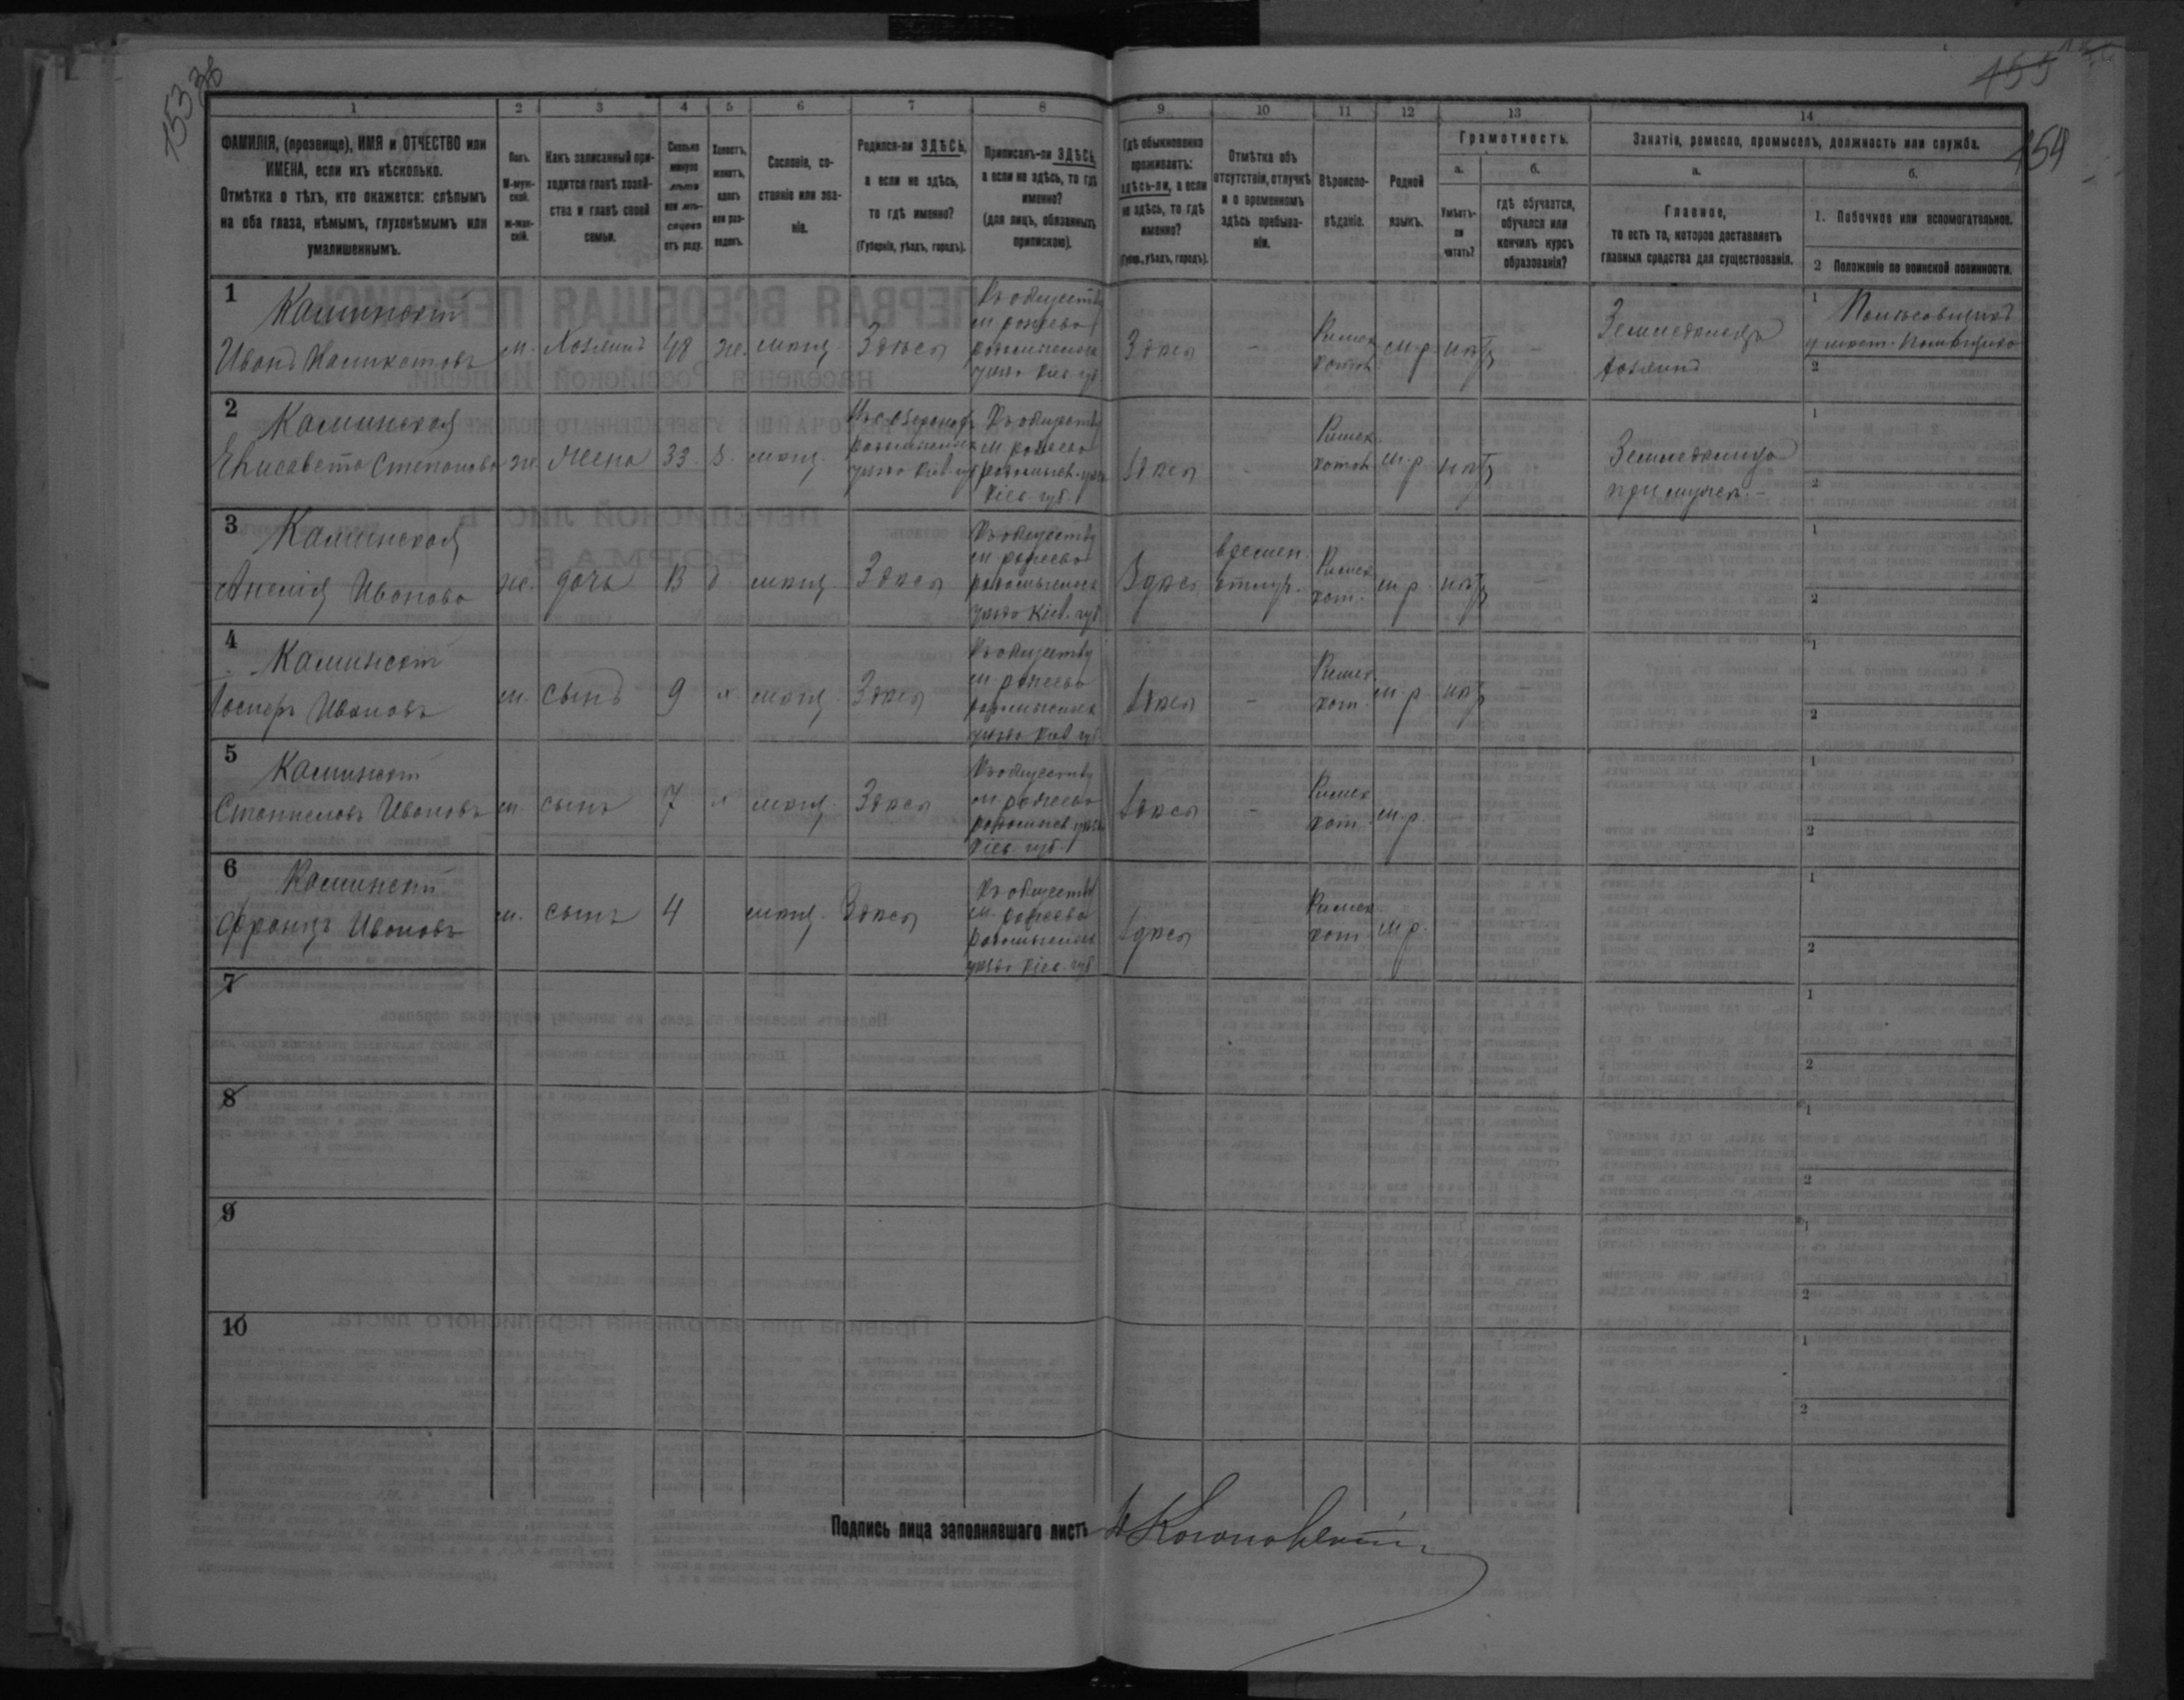 153 об
155
154
1 2 3 4 5 6 7 8 9 10 11 12 13 14
ФАМИЛІЯ, (прозвище), ИМЯ и ОТЧЕСТВО или
ИМЕНА, если ихъ нѣсколько.
Отмѣтка о тѣхъ, кто окажется: слѣпымъ
на оба глаза, нѣмымъ, глухонѣмымъ или
умалишеннымъ.
Полъ.
М-муж-
ской.
ж-жен-
скій.
Какъ записанный при-
ходится главѣ хозяй-
ства и главѣ своей
семьи.
Сколько
минуло
лѣтъ
или мѣ-
сяцевъ
отъ роду.
Холостъ,
женатъ,
вдовъ
или раз-
веденъ.
Сословіе, со-
стояніе или зва-
ніе.
Родился-ли ЗДѢСЬ,
а если не здѣсь,
то гдѣ именно?
(Губернія, уѣздъ, городъ).
Приписанъ-ли ЗДѢСЬ,
а если не здѣсь, то гдѣ
именно?
(для лицъ, обязанныхъ
припискою).
Гдѣ обыкновенно
проживаетъ:
здѣсь-ли, а если
не здѣсь, то гдѣ
именно?
(Губер., уѣздъ, городъ).
Отмѣтка объ
отсутствіи, отлучкѣ
и о временномъ
здѣсь пребыва-
ніи.
Вѣроиспо-
вѣданіе.
Родной
языкъ.
Грамотность.
а.
Умѣетъ-
ли
читать?
б.
гдѣ обучается,
обучался или
кончилъ курсъ
образованія?
Занятіе, ремесло, промыселъ, должность или служба.
а.
Главное,
то есть то, которое доставляетъ
главныя средства для существованія.
б.
1. Побочное или вспомогательное.
2 Положеніе по воинской повинности.
1
Каминскій
Иванъ
м. Хозяинъ 48 ж. мѣщ. Здѣсь
Къ обществу
м. рожева
радомысльск.
уѣзда Кіев. губ.
Здѣсь -
Римск.
катол.
м.р. нѣтъ -
Земледѣлецъ
хозяинъ
1
2
2
Каминская
Елисавета Степанова ж. жена 33 з. мѣщ.
радомысльск.
уѣзда Кіев. губ.
Къ обществу
м. рожева
радомысл. уѣзда
Кіев. губ.
Здѣсь -
Римск.
катол.
м.р. нѣтъ
Земледѣлица
при мужѣ. -
1
2
3
Каминская
Анелія Иванова
ж. дочь 13 д мѣщ. Здѣсь
Къ обществу
м. рожева
радомысльск.
уѣзда Кіев. губ.
Здѣсь
времен.
отлуч.
Римск.
кат.
м.р. нѣтъ -
1
2
4
Каминскій
Іосифъ Ивановъ
м. сынъ 9 х. мѣщ. Здѣсь
Къ обществу
м. рожева
радомысльск.
уѣзда Кіев. губ.
Здѣсь -
Римск.
кат.
м.р. нѣтъ -
1
2
5
Каминскій
Станиславъ Ивановъ
м. сынъ 7 х. мѣщ. Здѣсь
Къ обществу
м. рожева
радомысл. уѣзда
Кіев. губ.
Здѣсь -
Римск.
кат.
м.р. -
1
2
6
Каминскій
Францъ Ивановъ
м. сынъ 4 мѣщ. Здѣсь
Къ обществу
м. рожева
радомысльск.
уѣзда Кіев. губ.
Здѣсь
Римск.
кат.
м.р.
1
2
7
1
2
8
1
2
9
1
2
10
1
2
Подпись лица заполнявшаго листъ